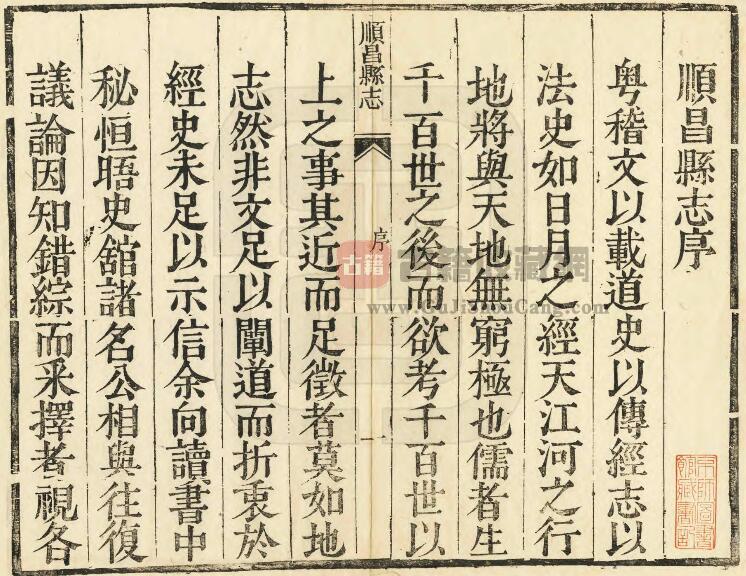 順昌縣志序
粵稽文以載道史以傳經志以
法史如日月之經天江河之行
地將與天地無窮極也儒者生
千百世之後而欲考千百世以
順昌縣志
序
一
上之事其近而足徵者莫如地
志然非文足以闡道而折衷於
經史未足以示信余向讀書中
秘恒晤史舘諸名公相與往復
議論因知錯綜而采擇者視各
古籍
古籍收藏網
www.GuJiShouCang.com